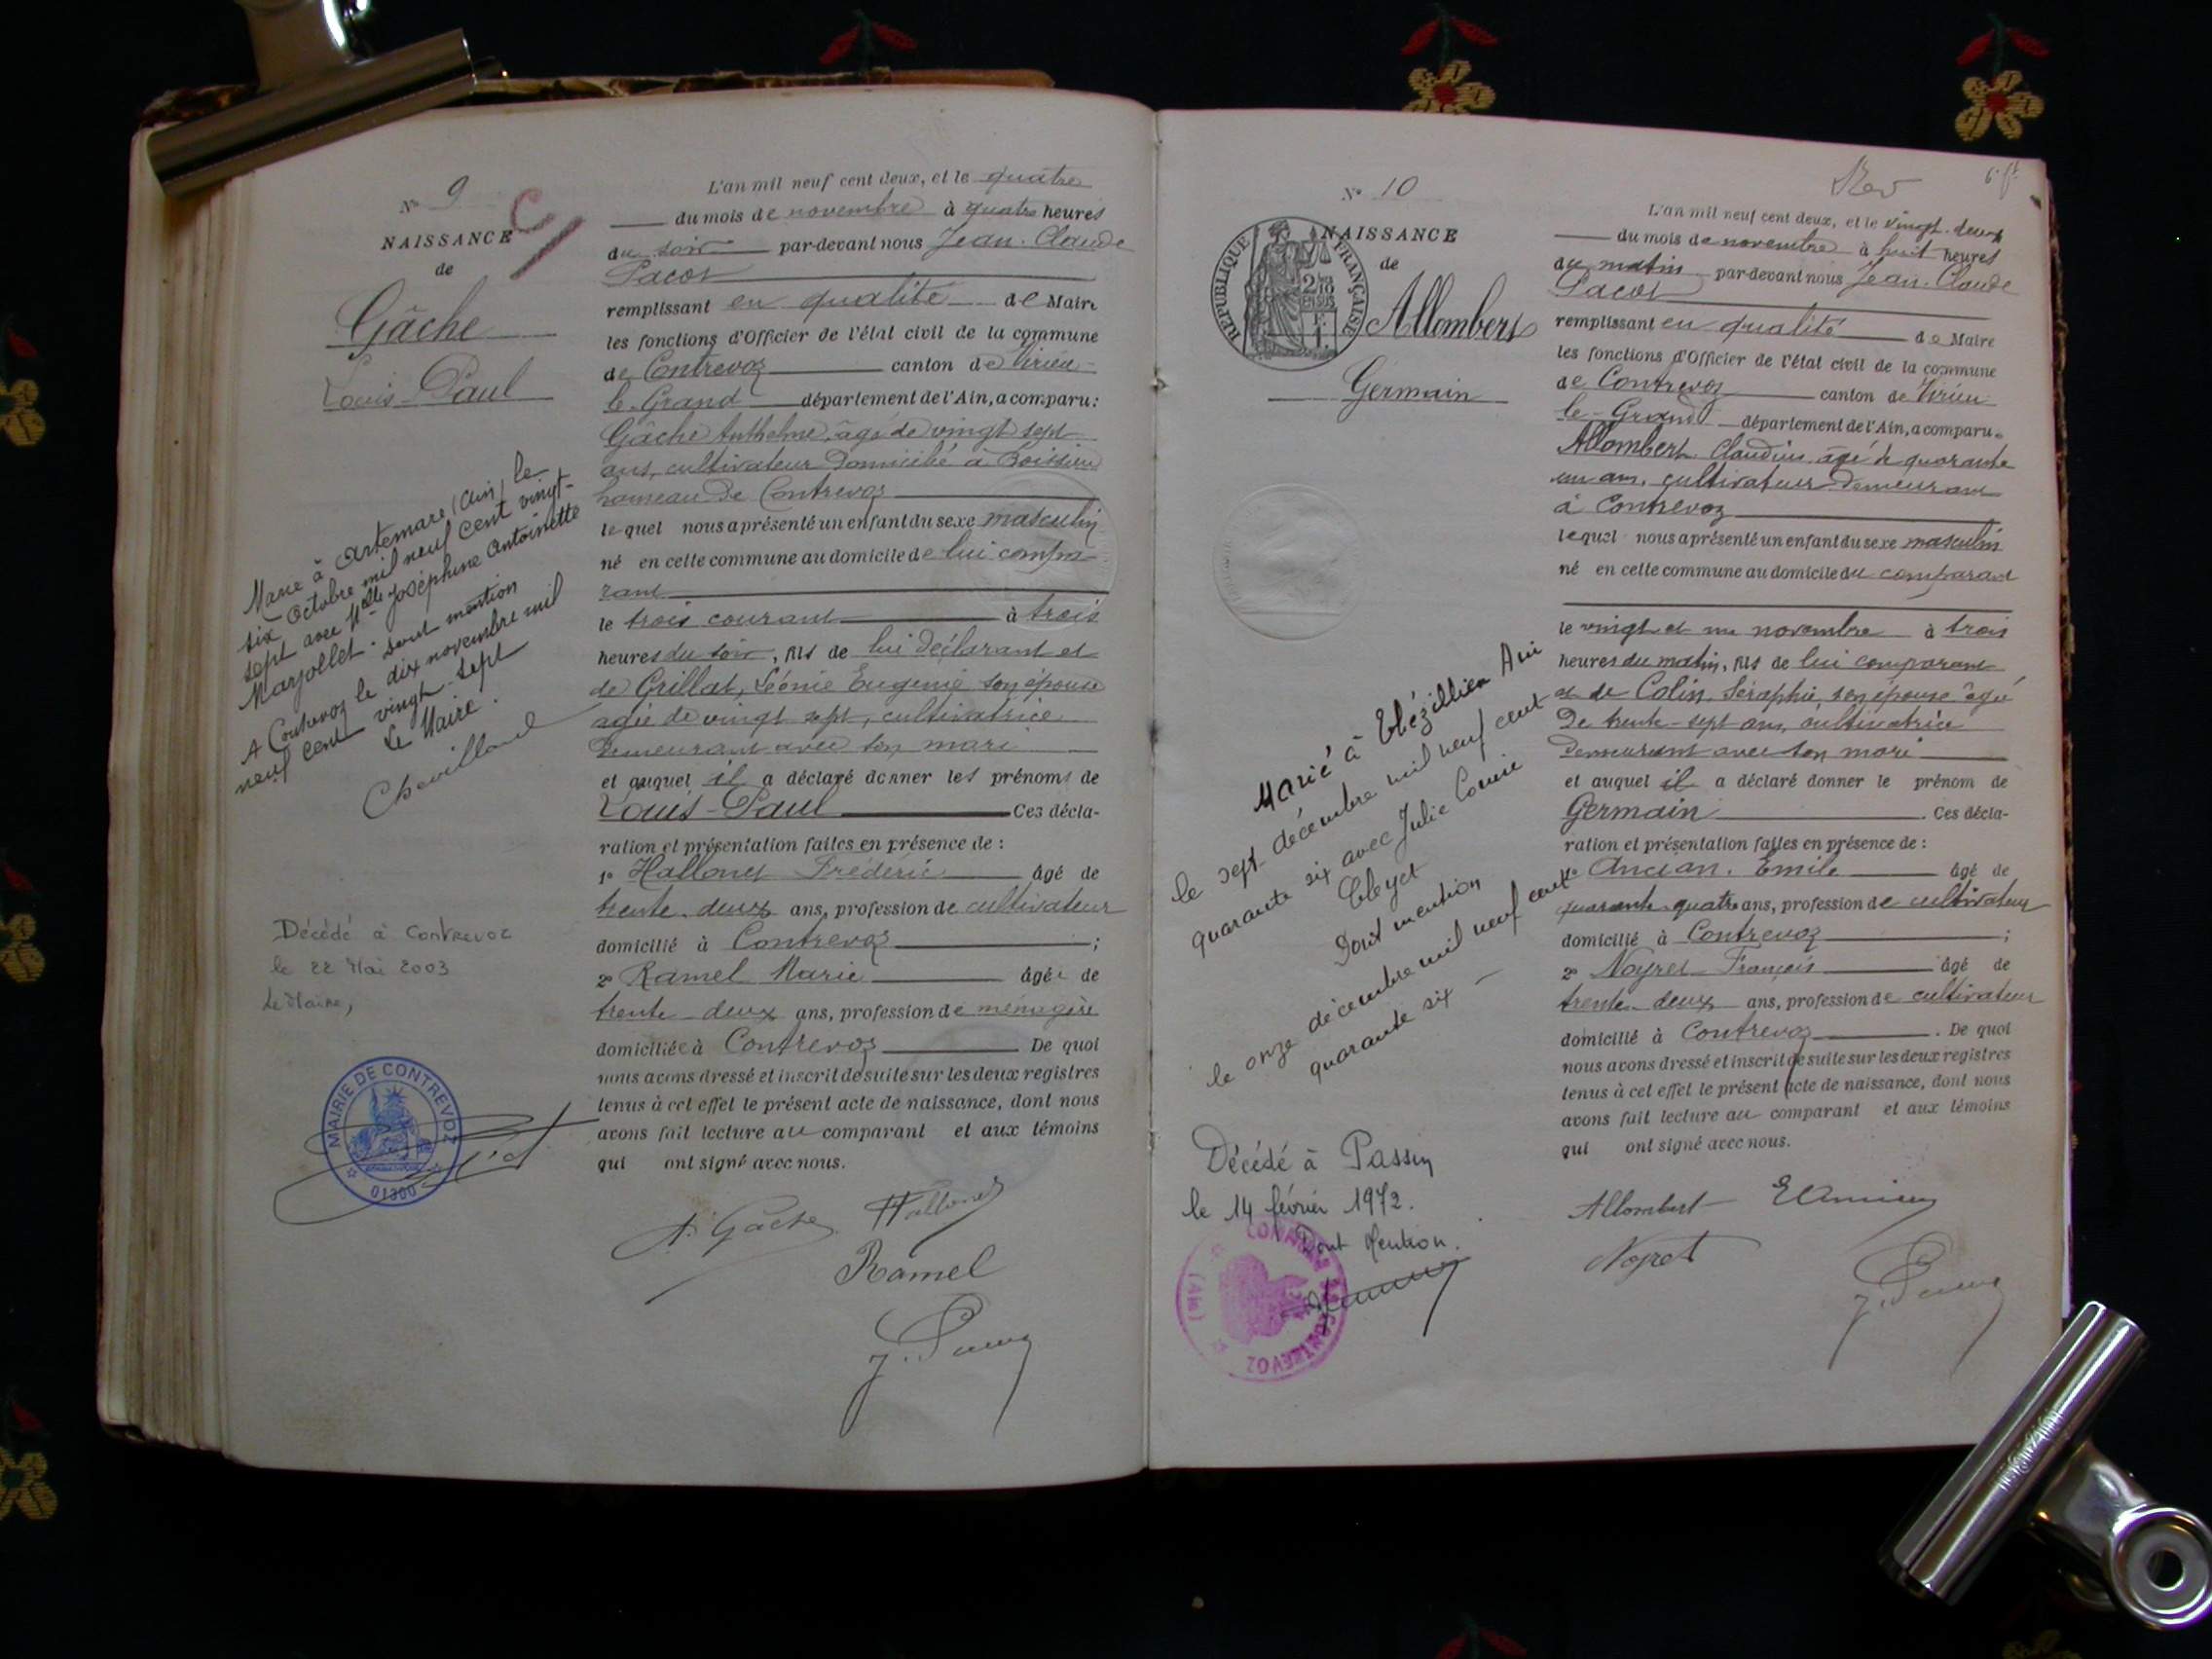 N° 9
NAISSANCE
de
Gâche
Louis-Paul
Marié à Artemare (Ain) le
six Octobre mil neuf cent vingt-
sept avec Mlle Joséphine Antoinette
Marjollet. dont mention
A Contrevoz le dix novembre mil
neuf cent vingt-sept
Le Maire.
Chevilland
Décédé à Contrevoz
le 22 Mai 2003
Le Maire,
MAIRIE DE CONTREVOZ
01300
L'an mil neuf cent deux, et le quatre
du mois de novembre à quatre heures
du soir par-devant nous Jean-Claude
remplissant en qualité de Maire
les fonctions d'Officier de l'état civil de la commune
de Contrevoz canton de Virieu-
le-Grand département de l'Ain, a comparu:
Gâche Anthelme, âgé de vingt sept
ans, cultivateur domicilié à Boissieu
hameau de Contrevoz
lequel nous a présenté un enfant du sexe masculin
né en cette commune au domicile de lui compa-
rant
le trois courant à trois
heures du soir, fils de lui déclarant et
de Grillat, Léonie Eugénie son épouse
agée de vingt sept, cultivatrice
demeurant avec son mari
et auquel il a déclaré donner les prénoms de
Louis-Paul Ces décla-
ration et présentation faites en présence de :
1° Hallonet Frédéric âgé de
trente-deux ans, profession de cultivateur
domicilié à Contrevoz ;
2° Ramel Marie âgée de
trente-deux ans, profession de ménagère
domiciliée à Contrevoz De quoi
nous avons dressé et inscrit de suite sur les deux registres
tenus à cet effet le présent acte de naissance, dont nous
avons fait lecture au comparant et aux témoins
qui ont signé avec nous.
A. Gache Hallonet
Ramel
N° 10
NAISSANCE
de
REPUBLIQUE FRANÇAISE
Allombert
Germain
Marié à Thézillieu Ain
le sept décembre mil neuf cent
quarante six avec Julie Louise
Cleyet
Dont mention
le onze décembre mil neuf cent
quarante six
Décédé à Passin
le 14 février 1972.
Dont Mention.
COMMUNE DE CONTREVOZ
(AIN)
6e ft
L'an mil neuf cent deux, et le vingt-deux
du mois de novembre à huit heures
du matin par-devant nous Jean-Claude
remplissant en qualité de Maire
les fonctions d'Officier de l'état civil de la commune
de Contrevoz canton de Virieu-
le-Grand département de l'Ain, a comparu.
Allombert Claudius âgé de quarante
un ans, cultivateur demeurant
à Contrevoz
lequel nous a présenté un enfant du sexe masculin
né en cette commune au domicile du comparant
le vingt et un novembre à trois
heures du matin, fils de lui comparant
et de Colin Séraphie, son épouse âgée
de trente-sept ans, cultivatrice
demeurant avec son mari
et auquel il a déclaré donner le prénom de
Germain . Ces décla-
ration et présentation faites en présence de :
1° Ancian. Emile âgé de
quarante-quatre ans, profession de cultivateur
domicilié à Contrevoz ;
2° Noyret François âgé de
trente-deux ans, profession de cultivateur
domicilié à Contrevoz . De quoi
nous avons dressé et inscrit de suite sur les deux registres
tenus à cet effet le présent acte de naissance, dont nous
avons fait lecture au comparant et aux témoins
qui ont signé avec nous.
Allombert E Ancian
Noyret